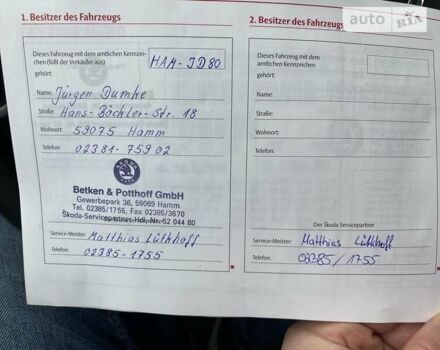 auto RIA
1. Besitzer des Fahrzeugs
Dieses Fahrzeug mit dem amtlichen Kennzei-
chen (füllt der Verkäufer aus)
HAM-JD80
gehört:
Name: Jürgen Dumke
Straße: Hans-Böckler-Str. 18
Wohnort: 59075 Hamm
Telefon: 02381-75902
SKODA
Betken & Potthoff GmbH
Gewerbepark 36, 59069 Hamm
Tel. 02385/1755, Fax 02385/3670
Skoda-Servicepartner-Hdl. Nr. 52 044 80
Service-Meister: Matthias Lüthhoff
Telefon: 02385-1755
2. Besitzer des Fahrzeugs
Dieses Fahrzeug mit dem
amtlichen Kennzeichen
gehört:
Name:
Straße:
Wohnort:
Telefon:
Der Skoda Servicepartner
Service-Meister: Matthias Lüthhoff
Telefon: 02385/1755